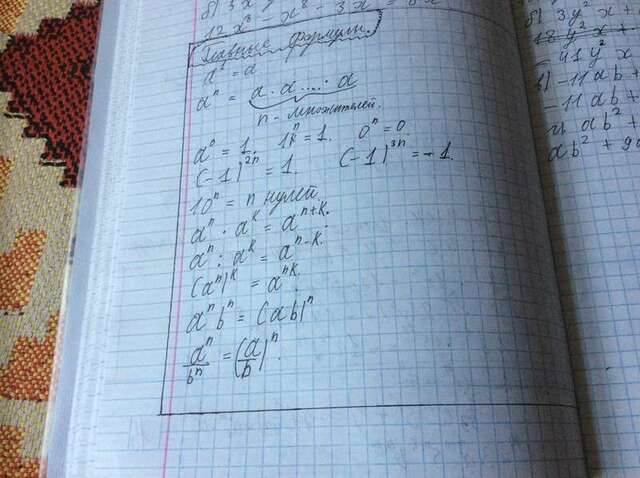 б) 3x
12x³ - x⁸ - 3x
Главные формулы
a¹ = a
aⁿ = a · a ..... · a
n - множителей.
a⁰ = 1. 1ⁿ = 1. 0ⁿ = 0
(-1)²ⁿ = 1. (-1)³ⁿ = -1.
10ⁿ = n нулей.
aⁿ · aᵏ = aⁿ⁺ᵏ.
aⁿ : aᵏ = aⁿ⁻ᵏ.
(aⁿ)ᵏ = aⁿᵏ.
aⁿbⁿ = (ab)ⁿ
aⁿ/bⁿ = (a/b)ⁿ
б) 3y² x +
18y² x +
- 41y² x
в) -11ab +
-11ab +
ab² +
ab² + 9a